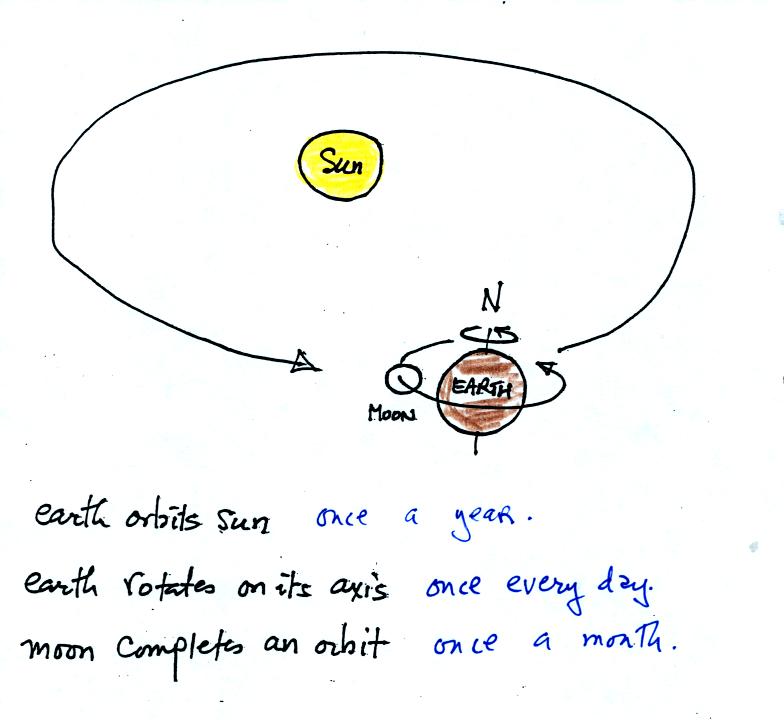 Sun
N
EARTH
MOON
earth orbits sun once a year.
earth rotates on its axis once every day.
moon completes an orbit once a month.